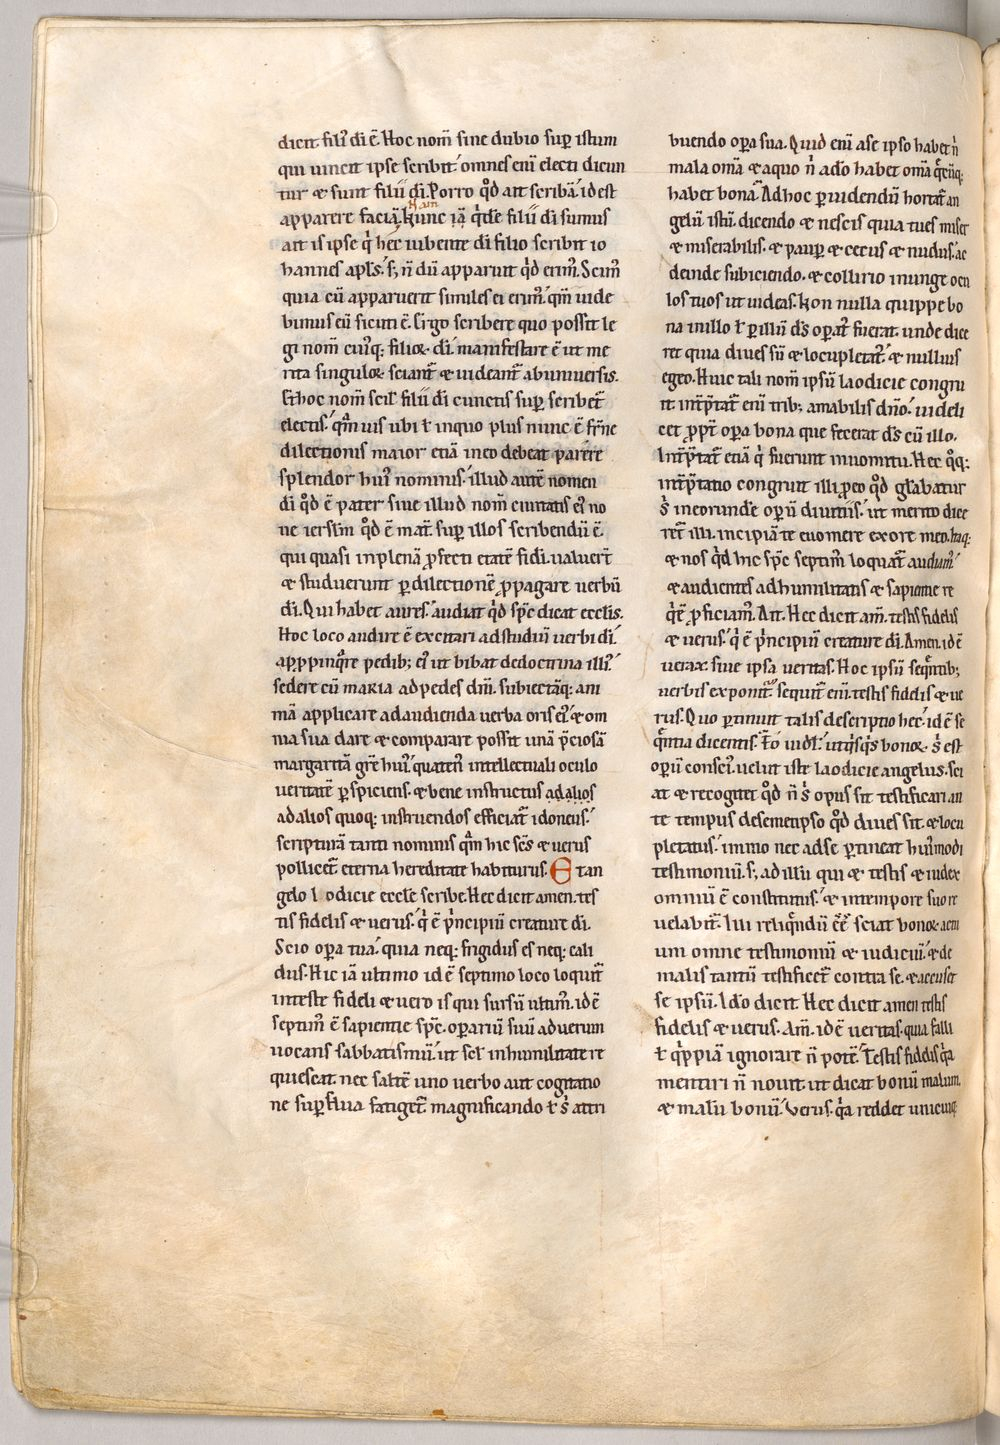 dicit. filiꝰ di ē. Hoc nom̄ sine dubio suꝑ istum
qui uincit ipse scribit. omnes eni electi dicun
tur & sunt filii di. Porro qd ait scribā. id est
apparere faciā. Nunc iā qde filii di sumus
ait is ipse q hec iubente di filio scribit io
hannes apls. s; n̄ dū apparuit qd erimꝰ. Scimꝰ
quia cū apparuerit similes ei erimꝰ. qm̄ uide
bimus eū sicuti ē. Ergo scribere quo possit le
gi nom̄ cuiꝰq; filioꝝ di. manifestare ē ut me
rita singuloꝝ sciant̄ & uideant̄ ab uniuersis.
Et hoc nom̄ scil filii di cunctis suꝑ scribet̄
electis. qm̄uis ubi ł in quo plus nunc ē fr̄ne
dilectionis maior etiā in eo debeat parere
splendor huiꝰ nominis. illud autē nomen
di qd ē pater siue illud nom̄ ciuitatis eiꝰ no
ue ierslm̄ qd ē mat̄. suꝑ illos scribendū ē.
qui quasi in plenā ꝓfecti etatē fidei. ualuert̄
& studuerunt ꝑ dilectionē ꝓpagare uerbū
di. Qui habet aures. audiat qd spc̄ dicat ecclis.
Hoc loco audire ē excitari ad studiū uerbi di.
apꝓpinq̄re pedib; eiꝰ ut bibat de doctrina illiꝰ.
sedere cū maria ad pedes dnī. subiectāq; ani
mā applicare ad audienda uerba oris eiꝰ. & om
nia sua dare & comparare possit unā p̄ciosā
margaritā gr̄e huiꝰ. quatenꝰ intellectuali oculo
ueritatē ꝑspiciens. & bene instructus ad alios
ad alios quoq; instruendos efficiat̄ idoneus.
scripturā tanti nominis qm̄ hic sc̄s & uerus
pollicet̄ eterna hereditate habiturus. Et an
gelo l odicie eccle scribe. Hec dicit amen. tes
tis fidelis & uerus. q ē p̄ncipiū creature di.
Scio oꝑa tua. quia neq; frigidus es neq; cali
dus. Hic iā ultimo id ē septimo loco loquit̄
in teste fideli & uero is qui sursū ultim̄. id ē
septim̄ ē sapientie spc̄. oꝑariū suū ad uerum
uocans sabbatismū. ut scl in humilitate re
quiescat. nec saltē uno uerbo aut cogitatio
ne suꝑflua fatiget̄ magnificando ł s attri
buendo oꝑa sua. Quid eni a se ipso habet n
mala om̄a & a quo n̄ a do habet om̄a q̄cūq;
habet bona. Ad hoc ꝑuidendū hortat̄ an
gelū istū. dicendo & nescis quia tu es miser
& miserabilis. & pauꝑ & cecus & nudus. ac
deinde subiciendo. & collirio inunge ocu
los tuos ut uideas. Non nulla quippe bo
na in illo ł ꝑ illū ds oꝑat̄ fuerat. unde dice
ret quia diues sū & locupletatꝰ. & nullius
egeo. Huic tali nom̄ ipsū laodicie congru
it. int̄p̄tat̄ eni trib; amabilis dn̄o. uideli
cet ꝓpt̄ oꝑa bona que fecerat ds cū illo.
Int̄p̄tat̄ etiā q fuerunt in uomitu. Hec qq;
int̄p̄tatio congruit illi ꝓ eo qd gl̄abatur
s in eorunde oꝑū diuitiis. ut merito dice
ret̄ illi. incipiā te euomere ex ore meo. Itaq;
& nos qd hic spc̄ septim̄ loquat̄ audiamꝰ.
& audientes ad humilitatis & sapientie re
qē ꝓficiamꝰ. Ait. Hec dicit am̄. testis fidelis
& uerus. q ē p̄ncipiū creature di. Amen. id ē
uerax. siue ipsa ueritas. Hoc ipsū seq̄ntib;
uerbis exponit̄. sequit̄ eni. testis fidelis & ue
rus. Quo ꝑtinuit talis descriptio hec. id ē se
q̄ntia dicentis. Eo uidl. ut qsqs bonoꝝ s est
oꝑū consciꝰ. uelut iste laodicie angelus. sci
at & recogitet qd n̄ s opus sit testificari an
te tempus de semetipso qd diues sit. & locu
pletatus. immo nec ad se ꝑtineat huiꝰmodi
testimoniū. s; ad illū qui & testis & iudex
omniū ē constitutus. & in tempore suo re
uelabit̄. Illi relinq̄ndū ēē sciat bonoꝝ actu
um omne testimoniū & iudiciū. & de
malis tantū testificet̄ contra se. & accuset
se ipsū. Ido dicit. Hec dicit amen testis
fidelis & uerus. Am̄. id ē ueritas. quia falli
ł qppiā ignorare n̄ potē. Testis fidelis qa
mentiri n̄ nouit. ut dicat bonū malum.
& malū bonū. Verus. qa reddet unicuiq;